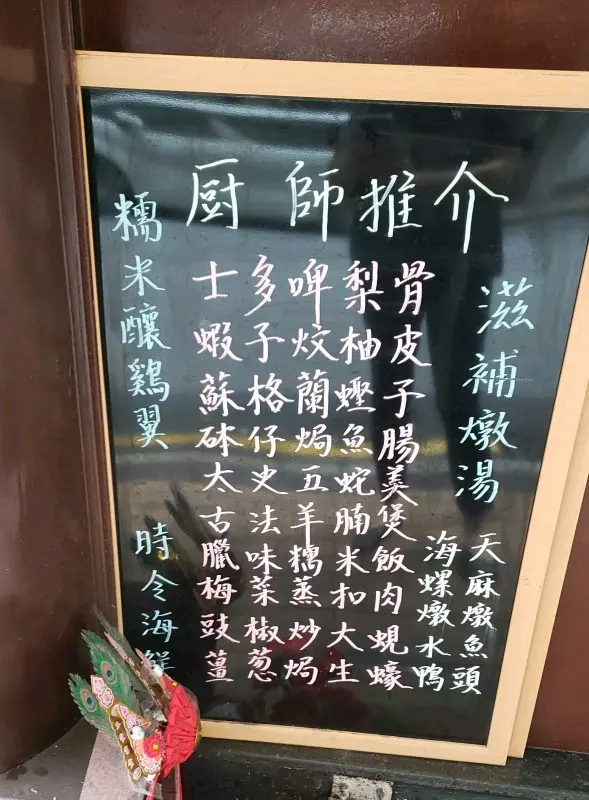 厨師推介
滋補燉湯
天麻燉魚頭
海螺燉水鴨
士多啤梨骨
蝦子炆柚皮
蘇格蘭蟶子
砵仔焗魚腸
太史五蛇羹
古法羊腩煲
臘味糯米飯
梅菜蒸扣肉
豉椒炒大蜆
薑葱焗生蠔
糯米釀鷄翼
時令海鮮